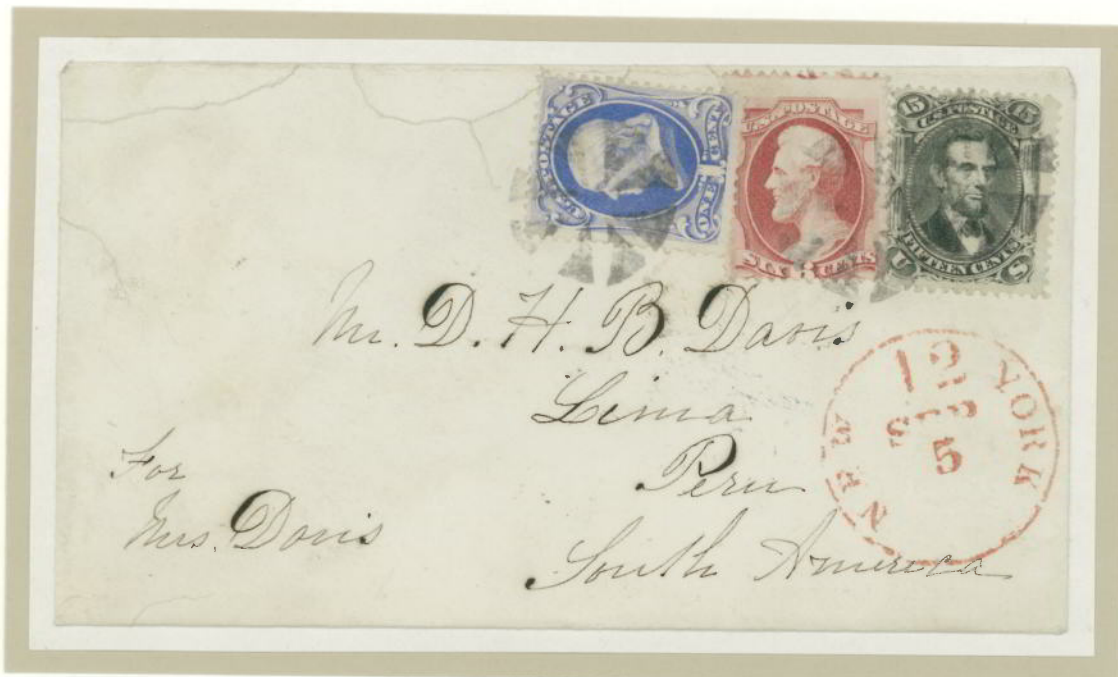 U.S. POSTAGE
ONE 1 CENT
U.S. POSTAGE
SIX 6 CENTS
15 15
U.S. POSTAGE
FIFTEEN CENTS
U S
Mr. D. H. B. Davis
Lima
Peru
South America
For
Mrs. Davis
NEW YORK
12
SEP
5